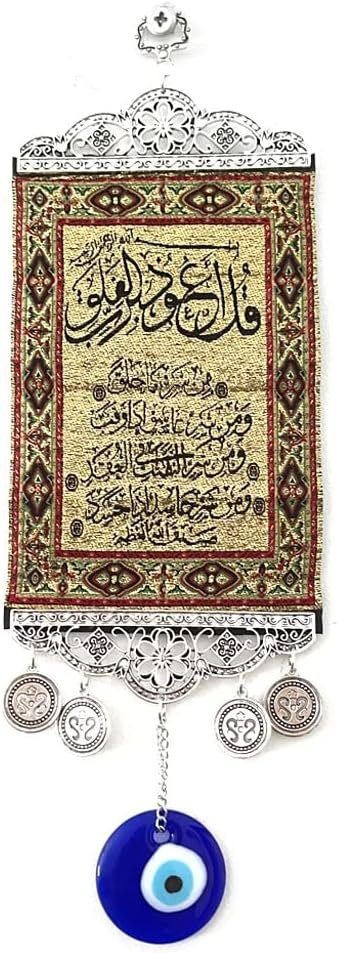 بسم الله الرحمن الرحيم
قل أعوذ برب الفلق
من شر ما خلق
ومن شر غاسق إذا وقب
ومن شر النفاثات في العقد
ومن شر حاسد إذا حسد
صدق الله العظيم